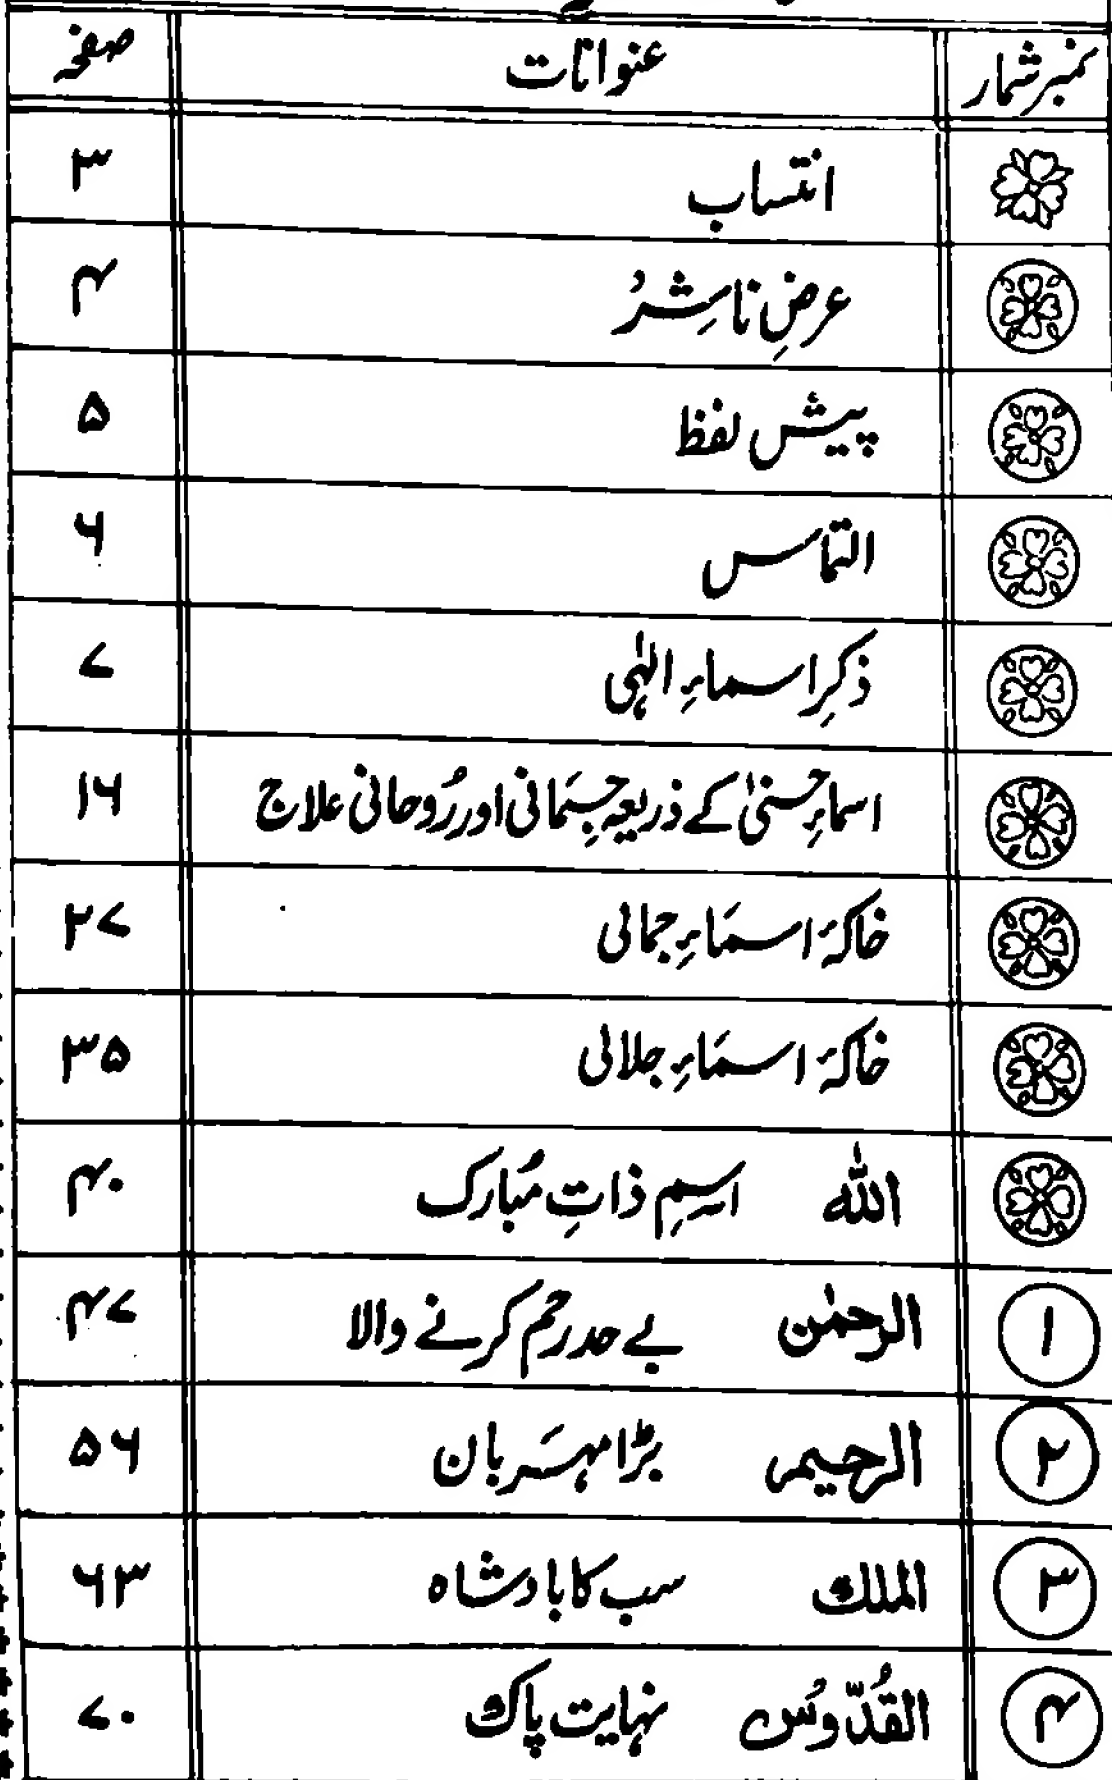 نمبر شمار عنوانات صفحہ
انتساب ۳
عرضِ ناشِرُ ۴
پیش لفظ ۵
التماس ۶
ذکرِ اسماءِ الٰہی ۷
اسماءِ حسنیٰ کے ذریعہ جِسَمانی اور رُوحانی علاج ۱۶
خاکۂ اسمَاءِ جمالی ۲۷
خاکۂ اسمَاءِ جلالی ۳۵
اللہ اسمِ ذاتِ مُبارک ۴۰
۱ الرحمٰن بے حد رحم کرنے والا ۴۷
۲ الرحیم بڑا مہَربان ۵۶
۳ الملک سب کا بادشاہ ۶۳
۴ القُدّوُس نہایت پاک ۷۰